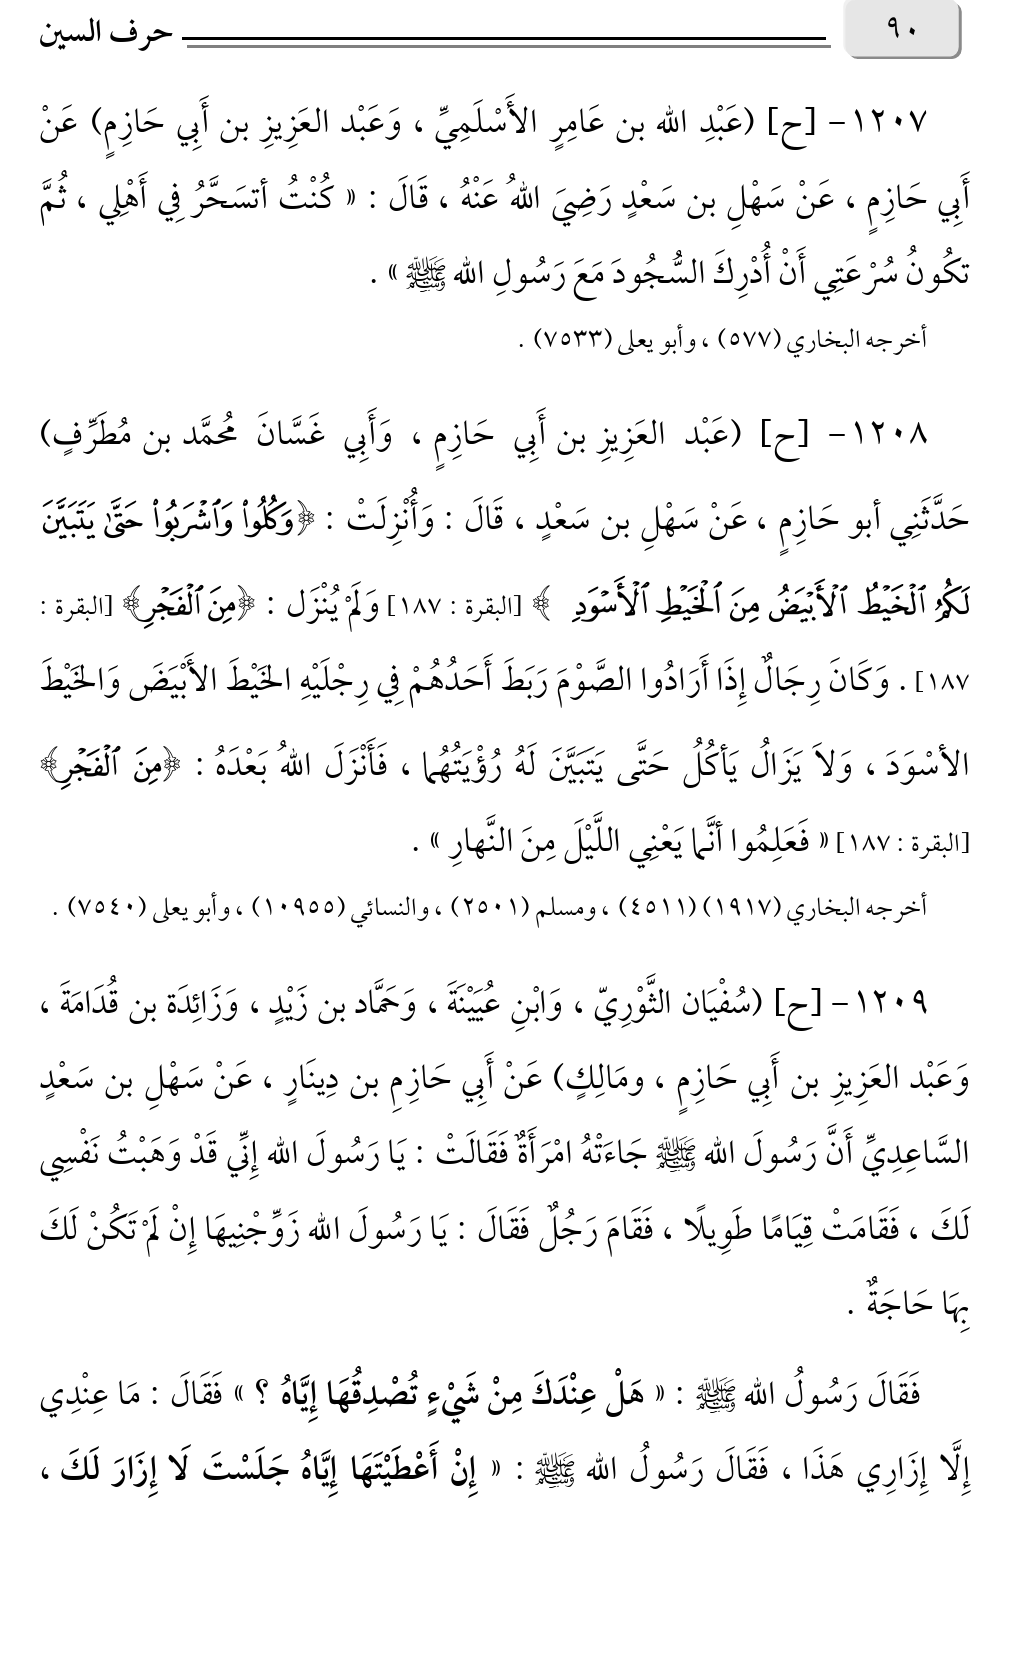 ٩٠
حرف السين
١٢٠٧- [ح] (عَبْدِ الله بن عَامِرٍ الأَسْلَمِيِّ ، وَعَبْد العَزِيزِ بن أَبِي حَازِمٍ) عَنْ
أَبِي حَازِمٍ ، عَنْ سَهْلِ بن سَعْدٍ رَضِيَ اللهُ عَنْهُ ، قَالَ : « كُنْتُ أتسَحَّرُ فِي أَهْلِي ، ثُمَّ
تكُونُ سُرْعَتِي أَنْ أُدْرِكَ السُّجُودَ مَعَ رَسُولِ الله ﷺ » .
أخرجه البخاري (٥٧٧) ، وأبو يعلى (٧٥٣٣) .
١٢٠٨- [ح] (عَبْد العَزِيزِ بن أَبِي حَازِمٍ ، وَأَبِي غَسَّانَ مُحمَّد بن مُطَرِّفٍ)
حَدَّثَنِي أبو حَازِمٍ ، عَنْ سَهْلِ بن سَعْدٍ ، قَالَ : وَأُنْزِلَتْ : ﴿وَكُلُوا۟ وَٱشْرَبُوا۟ حَتَّىٰ يَتَبَيَّنَ
لَكُمُ ٱلْخَيْطُ ٱلْأَبْيَضُ مِنَ ٱلْخَيْطِ ٱلْأَسْوَدِ ﴾ [البقرة : ١٨٧] وَلَمْ يُنْزَل : ﴿مِنَ ٱلْفَجْرِ﴾ [البقرة :
١٨٧] . وَكَانَ رِجَالٌ إِذَا أَرَادُوا الصَّوْمَ رَبَطَ أَحَدُهُمْ فِي رِجْلَيْهِ الخَيْطَ الأَبْيَضَ وَالخَيْطَ
الأسْوَدَ ، وَلاَ يَزَالُ يَأكُلُ حَتَّى يَتَبَيَّنَ لَهُ رُؤْيَتُهُما ، فَأَنْزَلَ اللهُ بَعْدَهُ : ﴿مِنَ ٱلْفَجْرِ﴾
[البقرة : ١٨٧] « فَعَلِمُوا أنَّما يَعْنِي اللَّيْلَ مِنَ النَّهارِ » .
أخرجه البخاري (١٩١٧) (٤٥١١) ، ومسلم (٢٥٠١) ، والنسائي (١٠٩٥٥) ، وأبو يعلى (٧٥٤٠) .
١٢٠٩- [ح] (سُفْيَان الثَّوْرِيّ ، وَابْنِ عُيَيْنَةَ ، وَحَمَّاد بن زَيْدٍ ، وَزَائِدَة بن قُدَامَةَ ،
وَعَبْد العَزِيزِ بن أَبِي حَازِمٍ ، ومَالِكٍ) عَنْ أَبِي حَازِمِ بن دِينَارٍ ، عَنْ سَهْلِ بن سَعْدٍ
السَّاعِدِيِّ أَنَّ رَسُولَ الله ﷺ جَاءَتْهُ امْرَأَةٌ فَقَالَتْ : يَا رَسُولَ الله إِنِّي قَدْ وَهَبْتُ نَفْسِي
لَكَ ، فَقَامَتْ قِيَامًا طَوِيلًا ، فَقَامَ رَجُلٌ فَقَالَ : يَا رَسُولَ الله زَوِّجْنِيهَا إِنْ لَمْ تَكُنْ لَكَ
بِهَا حَاجَةٌ .
فَقَالَ رَسُولُ الله ﷺ : « هَلْ عِنْدَكَ مِنْ شَيْءٍ تُصْدِقُهَا إِيَّاهُ ؟ » فَقَالَ : مَا عِنْدِي
إِلَّا إِزَارِي هَذَا ، فَقَالَ رَسُولُ الله ﷺ : « إِنْ أَعْطَيْتَهَا إِيَّاهُ جَلَسْتَ لَا إِزَارَ لَكَ ،